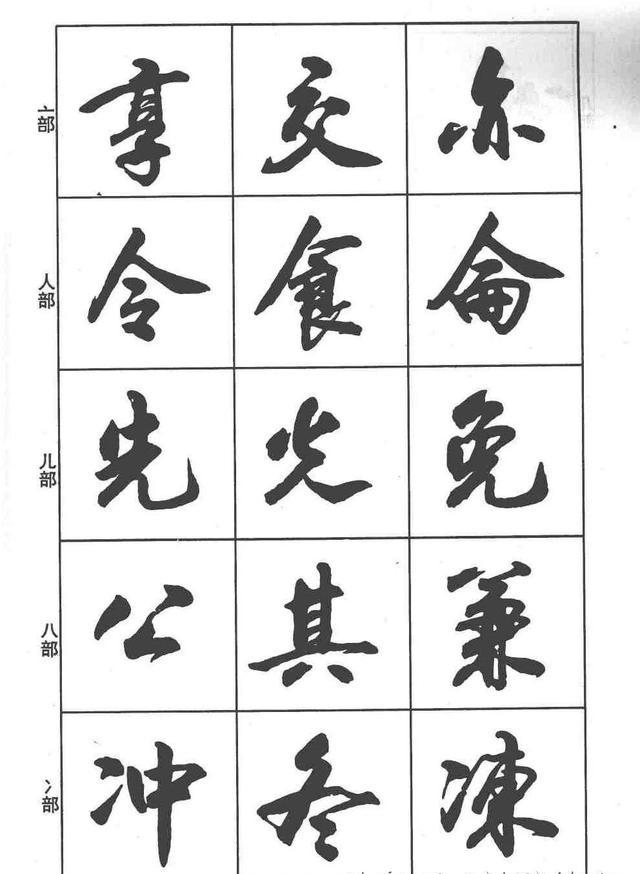 亠部 享 交 亦
人部 令 食 侖
儿部 先 光 免
八部 公 其 兼
冫部 冲 冬 凍